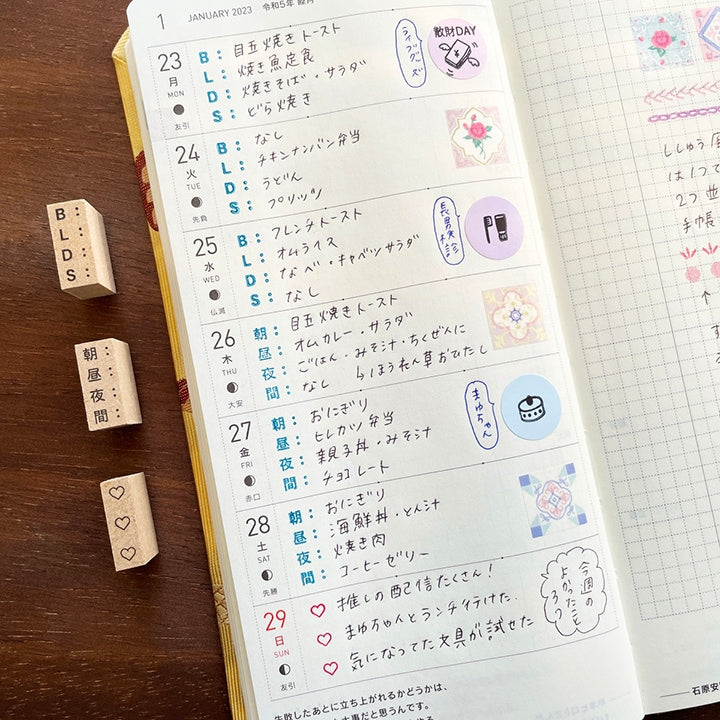 1 JANUARY 2023 令和5年 睦月
23 月 MON 友引
B: 目玉焼きトースト
L: 焼き魚定食
D: 焼きそば・サラダ
S: どら焼き
ライブグッズ
散財DAY
24 火 TUE 先負
B: なし
L: チキンナンバン弁当
D: うどん
S: プリッツ
25 水 WED 仏滅
B: フレンチトースト
L: オムライス
D: なべ・キャベツサラダ
S: なし
長男検診
26 木 THU 大安
朝: 目玉焼きトースト
昼: オムカレー・サラダ
夜: ごはん・みそ汁・ちくぜんに
間: なし ↳ほうれん草おひたし
27 金 FRI 赤口
朝: おにぎり
昼: ヒレカツ弁当
夜: 親子丼・みそ汁
間: チョコレート
まゆちゃん
28 土 SAT 先勝
朝: おにぎり
昼: 海鮮丼・とん汁
夜: 焼き肉
間: コーヒーゼリー
29 日 SUN 友引
♡ 推しの配信たくさん!
♡ まゆちゃんとランチ行けた.
♡ 気になってた文具が試せた
今週のよかったこと3つ
失敗したあとに立ち上がれるかどうかは、
大事だと思うんです。
B:
L:
D:
S:
朝:
昼:
夜:
間:
♡
♡
♡
ししゅう
は1つで
2つ並
手帳
↑
石原安